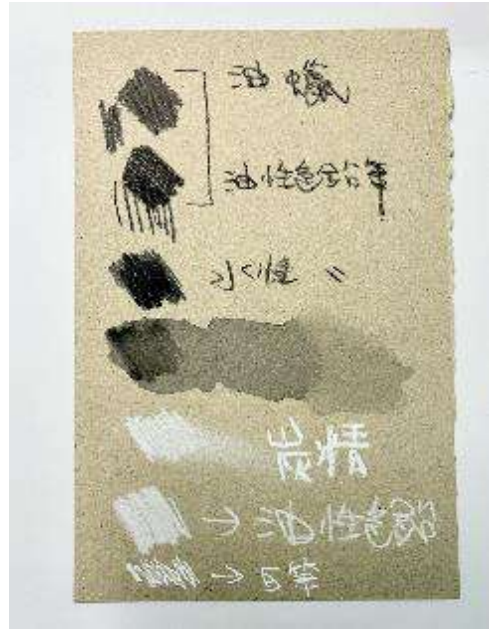 油蠟
油性色鉛筆
水性 〃
炭精
→ 油性色鉛
→ 白筆